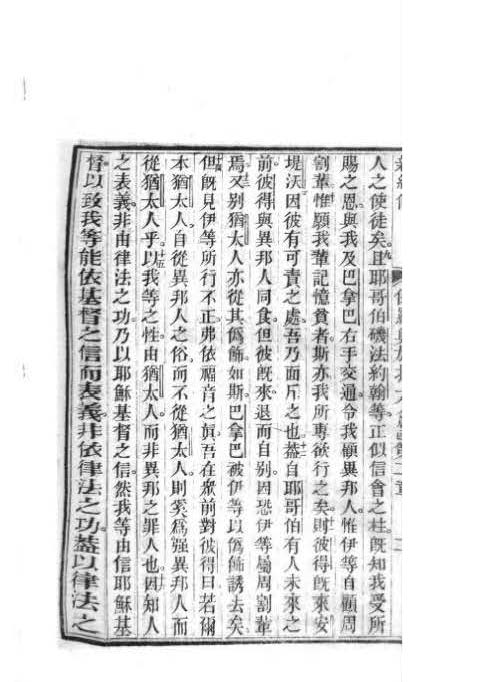 人之使徒矣。九且耶哥伯磯法約翰等。正似信會之柱。既知我受所
賜之恩。與我及巴拿巴右手交通。令我顧異邦人。惟伊等自顧周
割輩。十惟願我輩記憶貧者。斯亦我所專欲行之矣。十一則彼得既來安
堤沃。因彼有可責之處。吾乃面斥之也。十二蓋自耶哥伯有人未來之
前。彼得與異邦人同食。但彼既來。退而自别。因恐伊等屬周割輩
焉。十三又别猶太人亦從其僞飾。如斯。巴拿巴被伊等以僞飾誘去矣。
十四但既見伊等所行不正。弗依福音之眞。吾在衆前對彼得曰。若爾
本猶太人。自從異邦人之俗。而不從猶太人。則奚爲强異邦人而
從猶太人乎。十五以我等之性。由猶太人。而非異邦之罪人也。十六因知人
之表義。非由律法之功。乃以耶穌基督之信。然我等由信耶穌基
督。以致我等能依基督之信而表義。非依律法之功。蓋以律法之